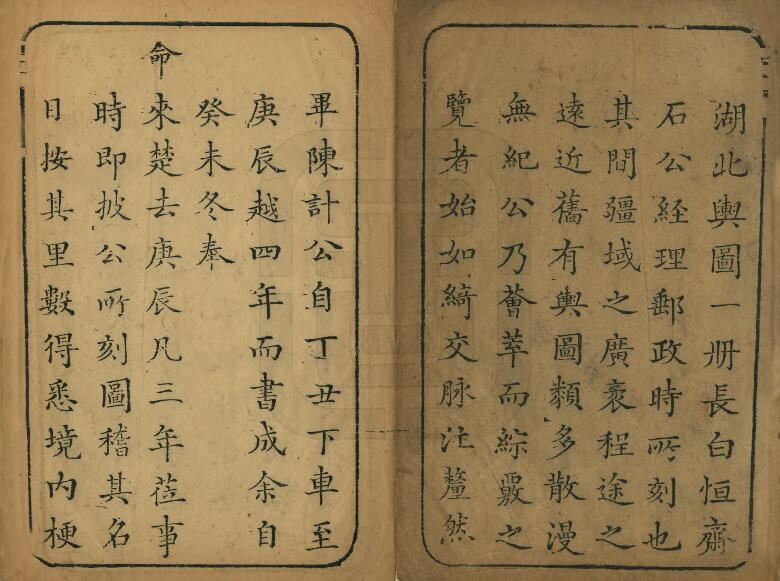 湖北輿圖一册長白恒齋
石公經理郵政時所刻也
其間疆域之廣袤程途之
遠近舊有輿圖類多散漫
無紀公乃薈萃而綜覈之
覽者始如綺交脉注釐然
畢陳計公自丁丑下車至
庚辰越四年而書成余自
癸未冬奉
命來楚去庚辰凡三年莅事
時即披公所刻圖稽其名
目按其里數得悉境内梗